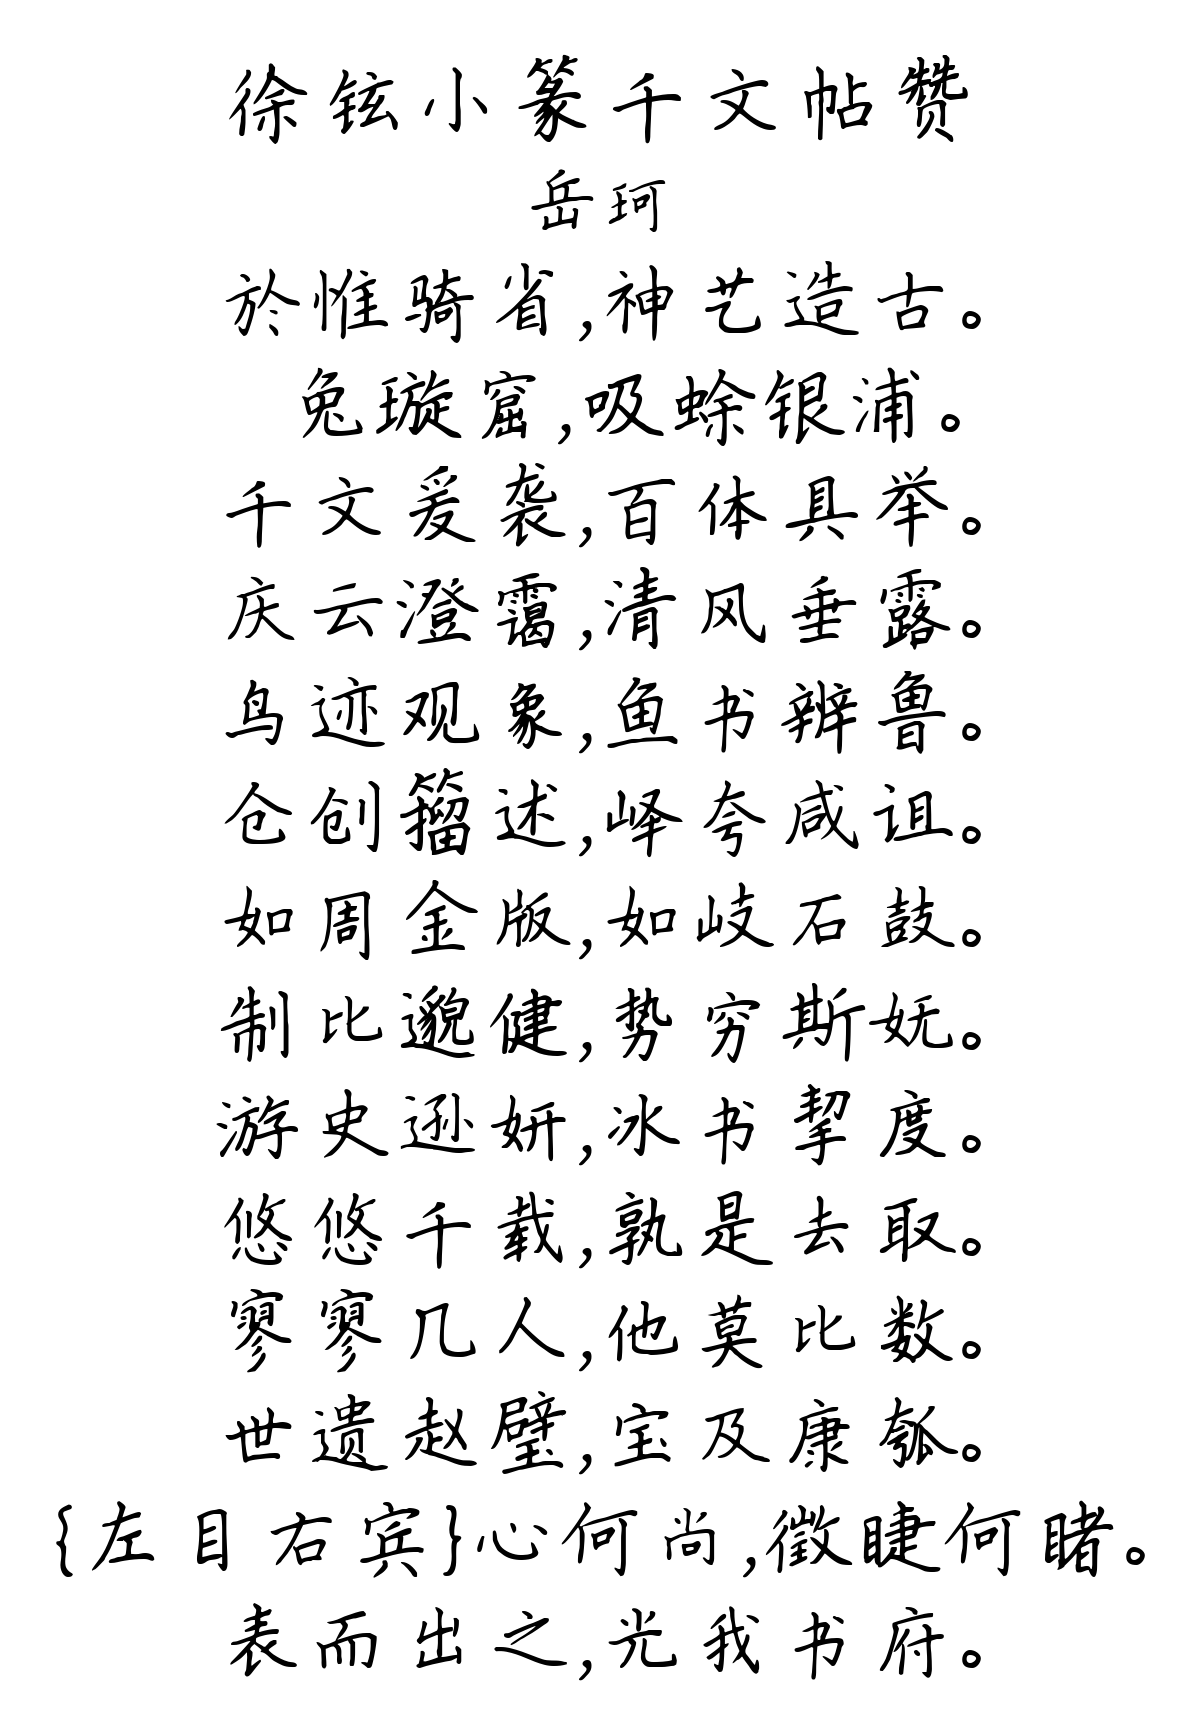 徐铉小篆千文帖赞
岳珂
於惟骑省,神艺造古。
兔璇窟,吸蜍银浦。
千文爰袭,百体具举。
庆云澄霭,清风垂露。
鸟迹观象,鱼书辨鲁。
仓创籀述,峄夸咸诅。
如周金版,如岐石鼓。
制比邈健,势穷斯妩。
游史逊妍,冰书挈度。
悠悠千载,孰是去取。
寥寥几人,他莫比数。
世遗赵璧,宝及康瓠。
{左目右宾}心何尚,徵睫何睹。
表而出之,光我书府。